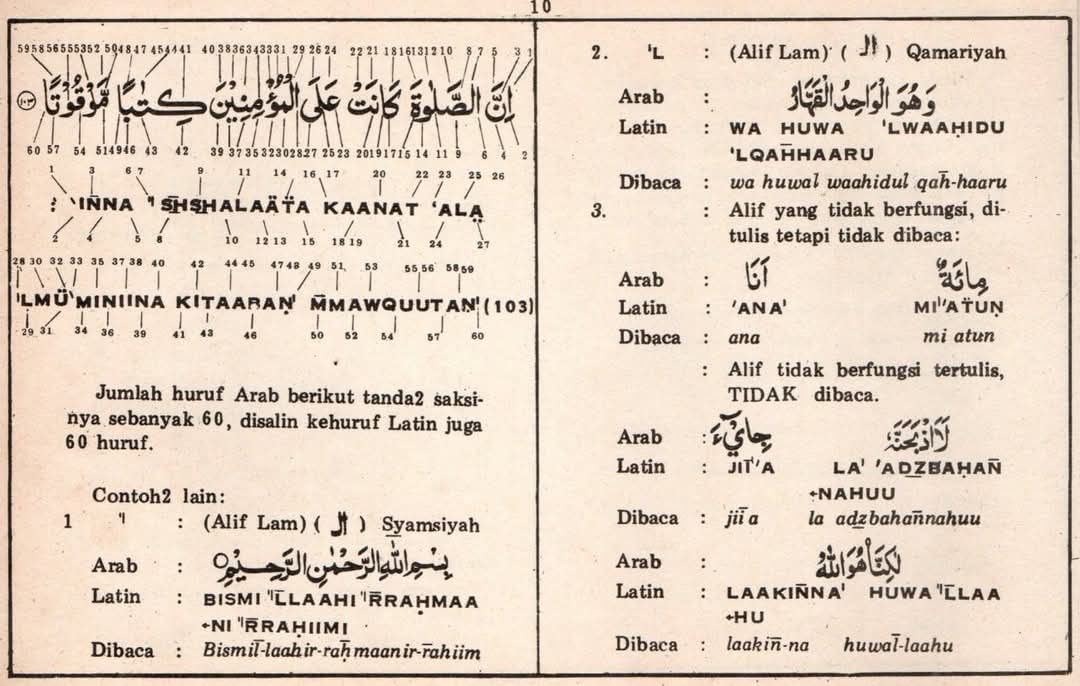 10
5958 56555352 504847 454441 40 3836343331 29 26 24 22 21 1816131210 8 7 5 3 1
اِنَّ الصَّلٰوةَ كَانَتْ عَلَى الْمُؤْمِنِيْنَ كِتٰبًا مَّوْقُوْتًا ١٠٣
60 57 54 514946 43 42 39 37 35 3230 28 27 25 23 20191715 14 11 9 6 4 2
1 3 6 7 9 11 14 16 17 20 22 23 25 26
: 'IN̄NA "I S̄H̄SHALAÄT̈A KAANAT 'ALẠ
2 4 5 8 10 12 13 15 18 19 21 24 27
28 30 32 33 35 37 38 40 42 44 45 47 48 49 51 53 55 56 58 59
'LMÜ'MINIINA KITAABAṆ' M̄MAWQUUTAṆ' (103)
29 31 34 36 39 41 43 46 50 52 54 57 60
Jumlah huruf Arab berikut tanda2 saksi-
nya sebanyak 60, disalin kehuruf Latin juga
60 huruf.
Contoh2 lain:
1 "I : (Alif Lam) ( ال ) Syamsiyah
Arab : بِسْمِ اللهِ الرَّحْمٰنِ الرَّحِيْمِ
Latin : BISMI "IL̄LAAHI "IR̄RAḤMAA
+NI "IR̄RAḤIIMI
Dibaca : Bismil̄-laahir-rah̄maanir-r̄ahiim
2. 'L : (Alif Lam) ( ال ) Qamariyah
Arab : وَهُوَ الْوَاحِدُ الْقَهَّارُ
Latin : WA HUWA 'LWAAḤIDU
'LQAH̄HAARU
Dibaca : wa huwal waahidul qah̄-haaru
3. : Alif yang tidak berfungsi, di-
tulis tetapi tidak dibaca:
Arab : اَنَا مِائَةٌ
Latin : 'ANA' MI''AT̈UṆ
Dibaca : ana mi atun
: Alif tidak berfungsi tertulis,
TIDAK dibaca.
Arab : جِايْٓءَ لَااَذْبَحَنَّهٗ
Latin : JIĪ'A LA' 'ADZBAḤAN̄
+NAHUU
Dibaca : jiī a la adzbahan̄nahuu
Arab : لٰكِنَّا۠ هُوَ اللهُ
Latin : LAAKIN̄NA' HUWA "IL̄LAA
+HU
Dibaca : laakin̄-na huwal̄-laahu